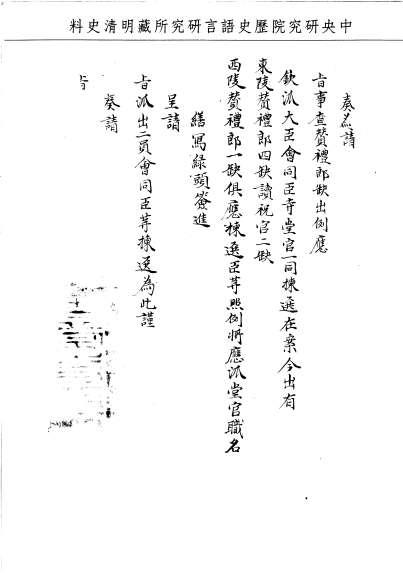 中央研究院歷史語言研究所藏明清史料
奏為請
旨事查贊禮郎缺出例應
欽派大臣會同臣寺堂官一同揀選在案今出有
東陵贊禮郎四缺讀祝官二缺
西陵贊禮郎一缺俱應揀選臣等照例將應派堂官職名
繕寫綠頭簽進
呈請
旨派出二員會同臣等揀選為此謹
奏請
旨